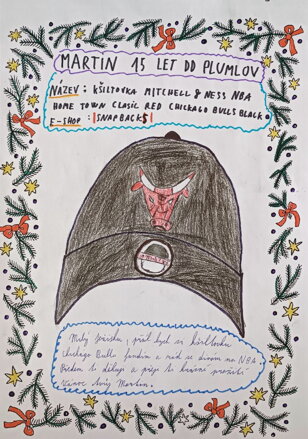 MARTIN 15 LET DD PLUMLOV
NÁZEV : KŠILTOVKA MITCHELL & NESS NBA
HOME TOWN CLASIC RED CHICKAGO BULLS BLACK
E-SHOP : |SNAPBACKS|
Milý Ježíšku, přál bych si kšiltovku
Chicago Bulls. Jsem fanda a rád se dívám na NBA
Předem ti děkuji a přeji ti krásné prožití
Vánoc Martin.